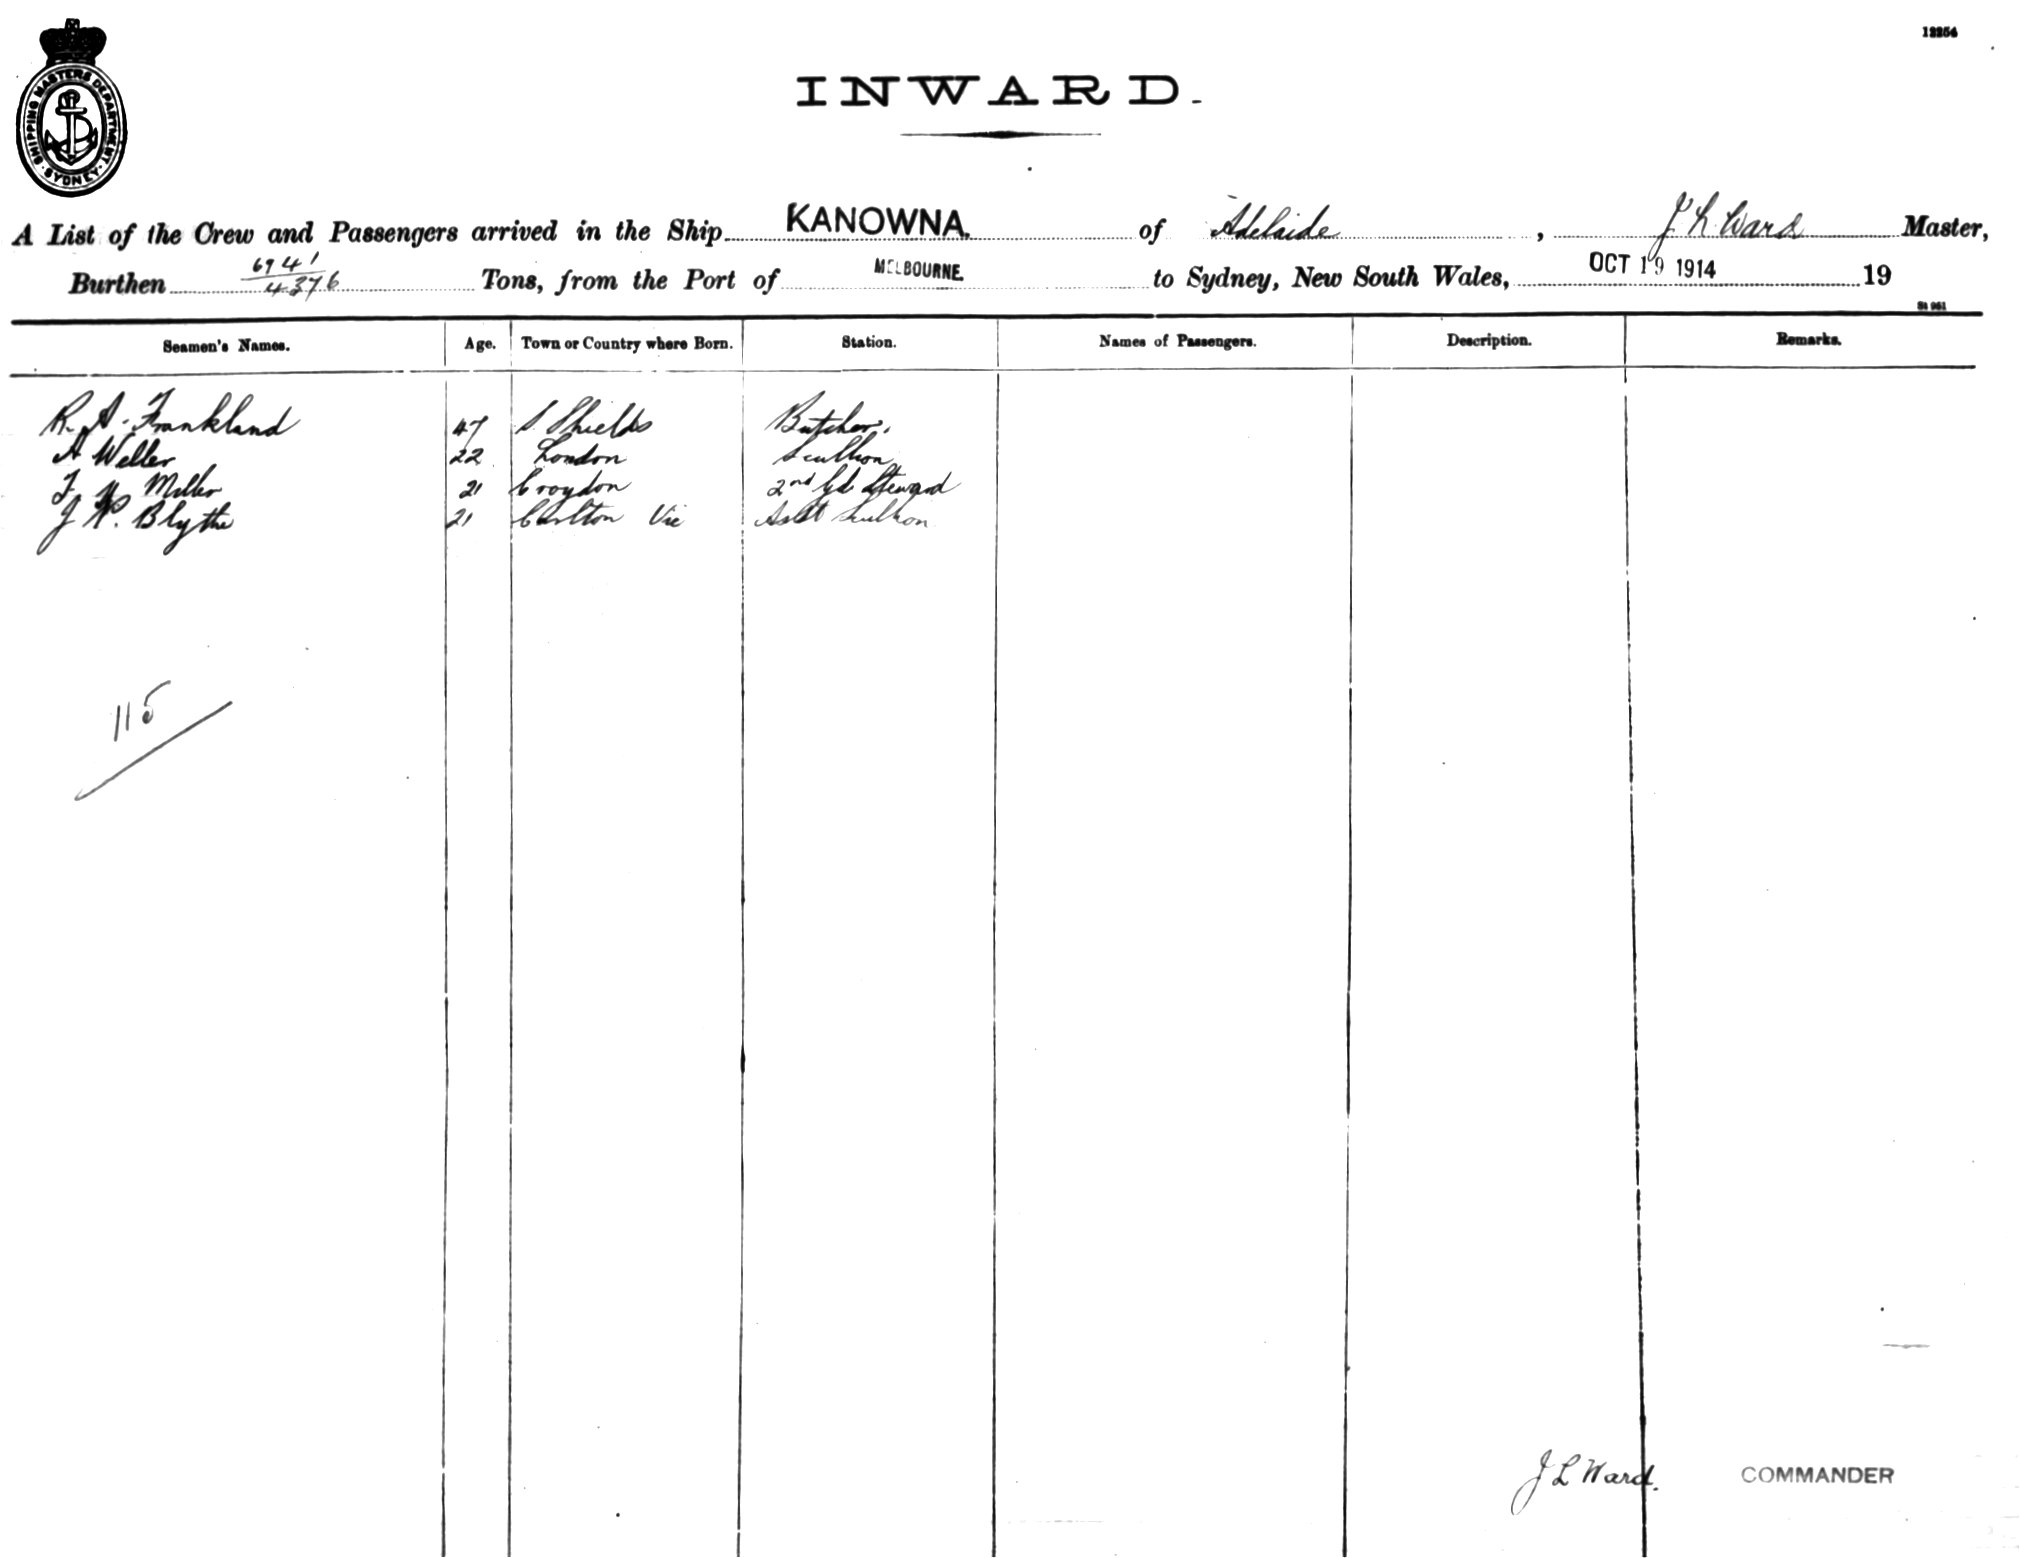 12254
SHIPPING MASTERS DEPARTMENT SYDNEY
INWARD.
A List of the Crew and Passengers arrived in the Ship KANOWNA. of Adelaide, J L Ward Master,
Burthen 6941 / 4376 Tons, from the Port of MELBOURNE. to Sydney, New South Wales, OCT 19 1914 19
St 961
Seamen's Names. Age. Town or Country where Born. Station. Names of Passengers. Description. Remarks.
R. A. Frankland 47 S Shields Butcher.
A Weller 22 London Scullion
F W Miller 21 Croydon 2nd Gd Steward
J W. Blythe 21 Carlton Vic Asst Scullion
115
J L Ward. COMMANDER